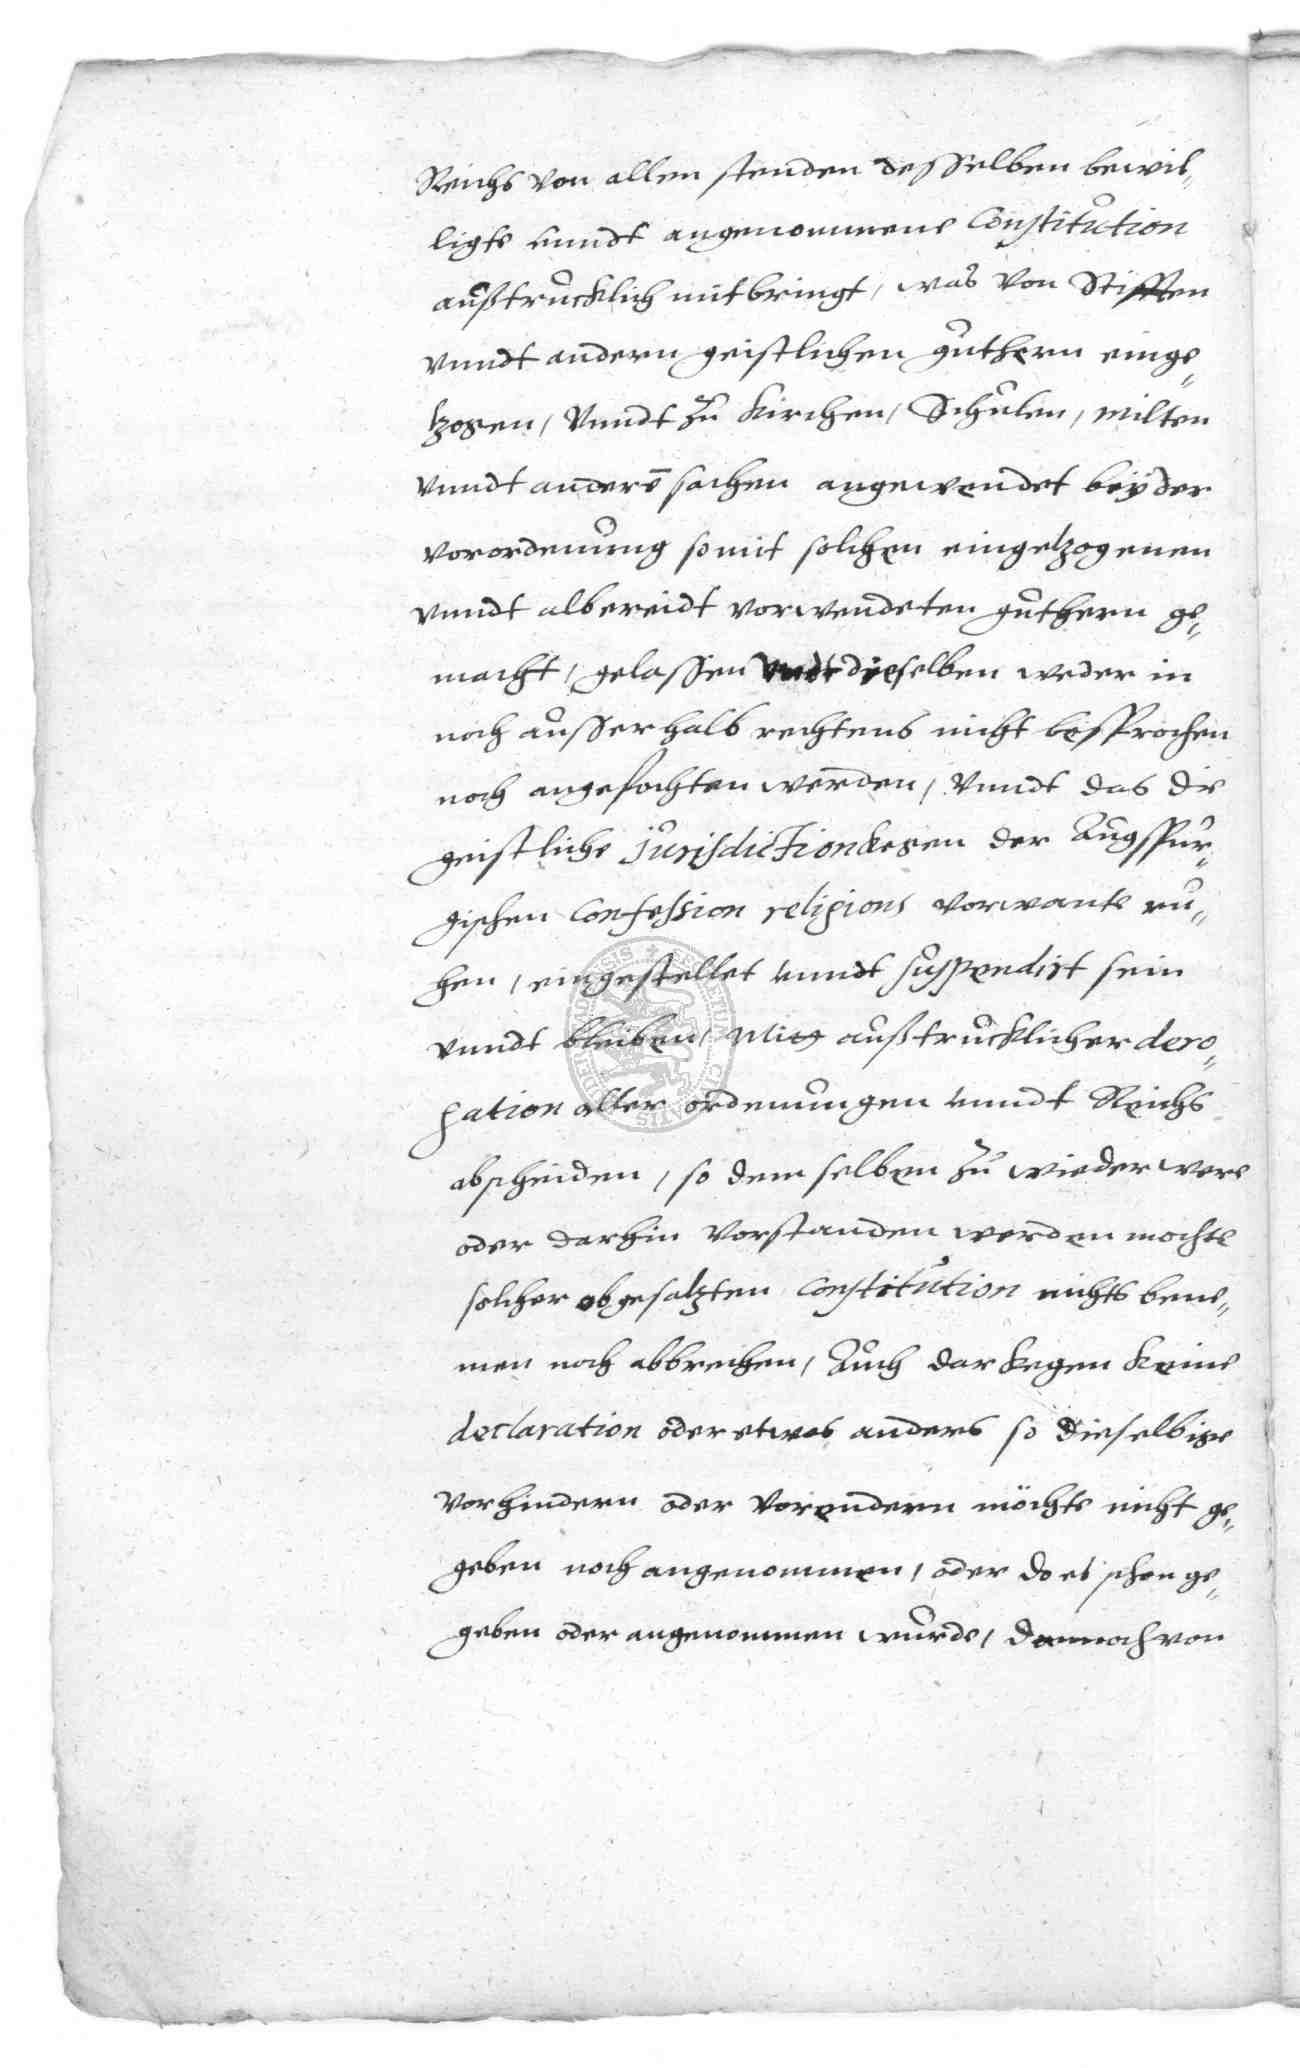 Reichs von allen stenden desselben bewil„
ligte vnndt angenommene Constitution
außtrucklich mitbringt, was von Stifften
vnndt andern geistlichen guthern einge„
tzogen, vnndt zu Kirchen, Schulen, milten
vnndt andern̄ sachen angewendet bey der
vorordenung so mit solchen eingetzogenen
vnndt albereidt vorwendeten guthern ge„
macht, gelassen vndt dieselben weder in
noch ausserhalb rechtens nicht besprochen
noch angefochten werden, vnndt das die
geistliche jurisdiction kegen der Augspur„
gischen Confession religions vorwante ru„
hen, eingestellet vnndt suspendirt sein
vnndt bleiben, Mit außtrucklicher dero„
gation aller ordenungen vnndt Reichs
abscheiden, so dem selben zu wieder were
oder darhin vorstanden werden mochte
solcher obgesatzten Constitution nichts bene„
men noch abbrechen, Auch dar kegen keine
declaration oder etwas anders so dieselbige
vorhindern oder vorendern möchte nicht ge„
geben noch angenommen, oder do es schon ge„
geben oder angenommen wurde, dannoch von